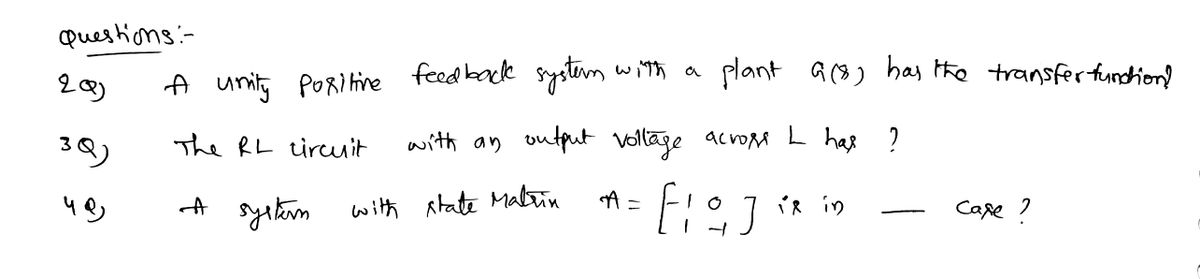 Questions:-
2Q) A unity positive feedback system with a plant G(s) has the transfer function?
3Q) The RL circuit with an output voltage across L has ?
4Q) A system with state Matrix A = [-1 0
1 -1] is in — case ?